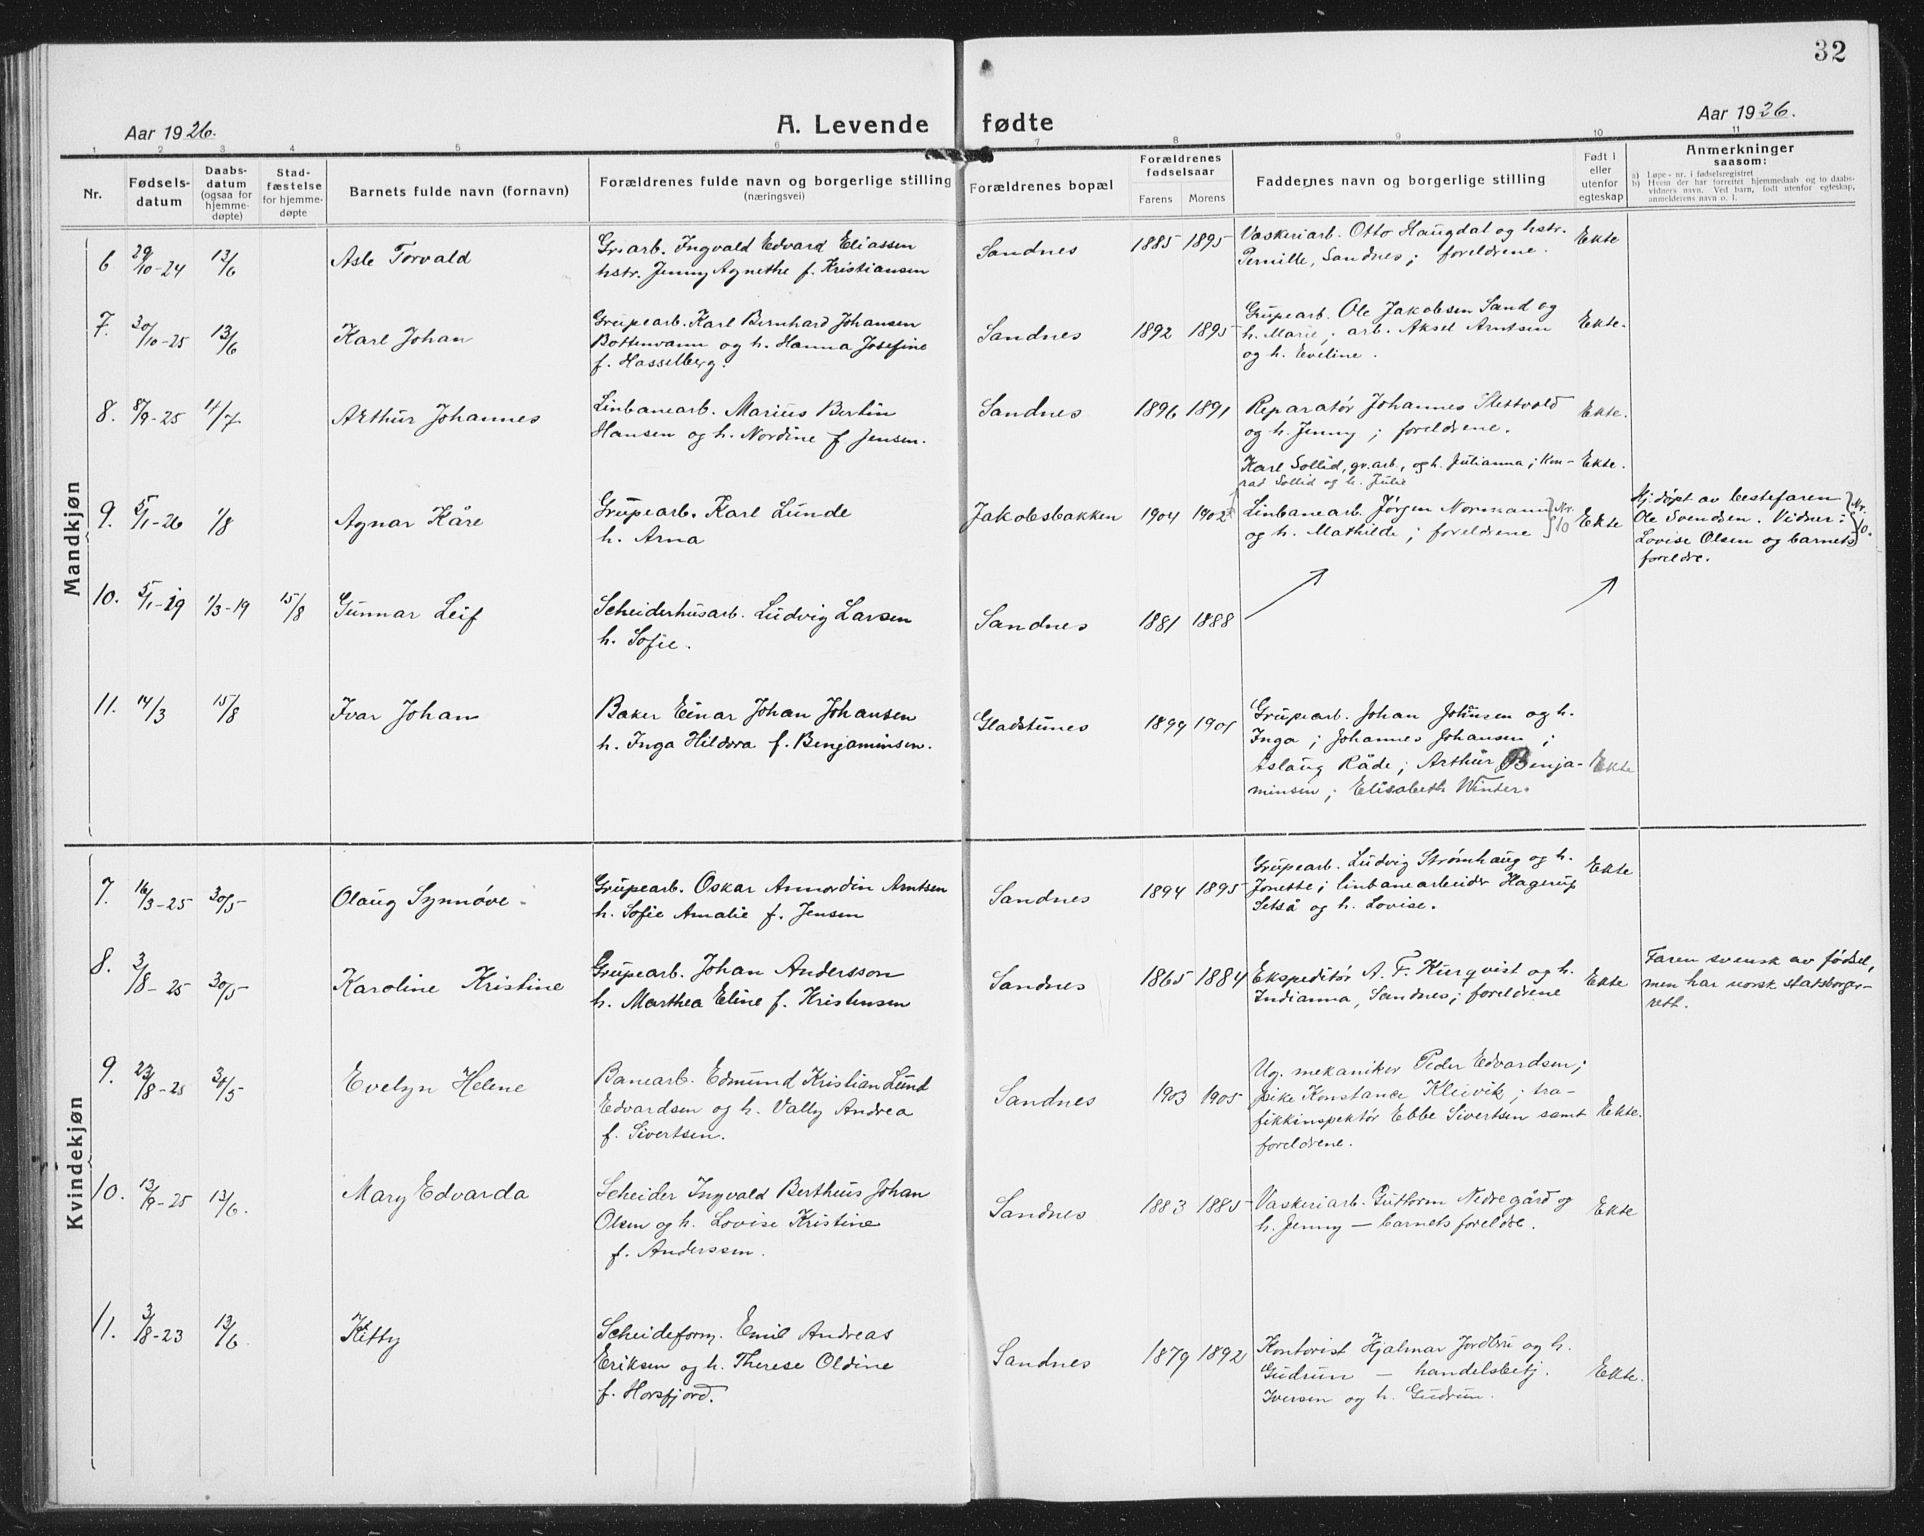 32
Aar 1926.
A. Levende fødte
Aar 1926.
1 2 3 4 5 6 7 8 9 10 11
Nr.
Fødsels-
datum
Daabs-
datum
(ogsaa for
hjemme-
døpte)
Stad-
fæstelse
for hjemme-
døpte
Barnets fulde navn (fornavn)
Forældrenes fulde navn og borgerlige stilling
(næringsvei)
Forældrenes bopæl
Forældrenes
fødselsaar
Farens Morens
Faddernes navn og borgerlige stilling
Født i
eller
utenfor
egteskap
Anmerkninger
saasom:
a) Løpe-nr. i fødselsregistret
b) Hvem der har forrettet hjemmedaab og to daabs-
vidners navn. Ved barn, født utenfor egteskap,
anmelderens navn o. l.
Mandkjøn
6 29/10-24 13/6 Asle Torvald
Gr.arb. Ingvald Edvard Eliassen
hstr. Jenny Agnethe f. Kristiansen
Sandnes 1885 1895
Vaskeriarb. Otto Haugdal og hstr.
Pernille, Sandnes; foreldrene.
Ekte
7. 30/10-25 13/6 Karl Johan
Grupearb. Karl Bernhard Johansen
Bottenvann og h. Hanna Josefine
f. Hasselberg.
Sandnes 1892 1895
Grupearb. Ole Jakobsen Sand og
h. Marie; arb. Aksel Arntsen
og h. Eveline.
Ekte.
8. 8/9-25 4/7 Arthur Johannes
Linbanearb. Marius Bertin
Hansen og h. Nordine f Jensen.
Sandnes 1896 1891
Reparatør Johannes Slettvold
og h. Jenny; foreldrene.
Ekte.
Karl Sollid, gr.arb., og h. Julianna; Kon-
rad Sollid og h. Julie
Ekte.
9. 5/1-26 1/8 Agnar Kåre
Grupearb. Karl Lunde
h. Arna
Jakobsbakken 1904 1902
Linbanearb. Jørgen Normann
og h. Mathilde; foreldrene
Nr. 10
Ekte
Hj.døpt av bestefaren
Ole Svendsen. Vidner:
Lovise Olsen og barnets
foreldre.
Nr. 10.
10. 5/1-19 1/3-19 15/8 Gunnar Leif
Scheiderhusarb. Ludvig Larsen
h. Sofie.
Sandnes 1881 1888
11. 14/3 15/8 Ivar Johan
Baker Einar Johan Johansen
h. Inga Hildora f. Benjaminsen.
Gladstunes 1899 1901
Grupearb. Johan Johansen og h.
Inga; Johannes Johansen;
Aslaug Råde; Arthur Benja-
minsen; Elisabeth Winter.
Ekte
Kvindekjøn
7. 16/3-25 30/5 Olaug Synnøve
Grupearb. Oskar Annordin Arntsen
h. Sofie Amalie f. Jensen
Sandnes 1894 1895
Grupearb. Ludvig Strømhaug og h.
Jonette; linbanearbeider Hagerup
Setså og h. Lovise.
Ekte
8. 3/8-25 30/5 Karoline Kristine
Grupearb. Johan Andersson
h. Marthea Eline f. Kristensen
Sandnes 1865 1884
Ekspeditør A. F. Kurqvist og h.
Indianna, Sandnes; foreldrene
Ekte
Faren svensk av fødsel,
men har norsk statsborger-
rett.
9. 23/8-25 30/5 Evelyn Helene
Banearb. Edmund Kristian Lund
Edvardsen og h. Vally Andrea
f. Sivertsen.
Sandnes 1903 1905
Ug. mekaniker Peder Edvardsen;
pike Konstance Kleivik; tra-
fikkinspektør Ebbe Sivertsen samt
foreldrene.
Ekte.
10. 13/9-25 13/6. Mary Edvarda
Scheider Ingvald Bertheus Johan
Olsen og h. Lovise Kristine
f. Anderssen.
Sandnes 1883 1885
Vaskeriarb. Guttorm Nedregård og
h. Jenny — barnets foreldre.
Ekte
11. 3/8-23 13/6 Kitty
Scheideform. Emil Andreas
Eriksen og h. Therese Oldine
f. Horsfjord.
Sandnes 1879 1892
Kontorist Hjalmar Jordbru og h.
Gudrun — handelsbetj.
Iversen og h. Gudrun.
Ekte.